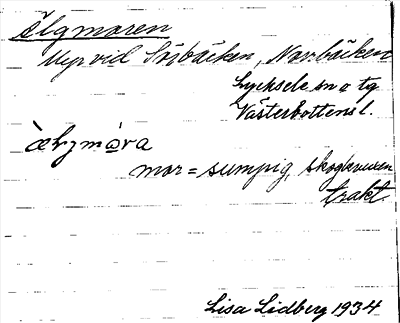 Älgmoren
Myr vid Sörbäcken, Norrbäcken
Lycksele sn o tg
Västerbottens l.
mor = sumpig, skogbevuxen
trakt.
Lisa Lidberg 1934